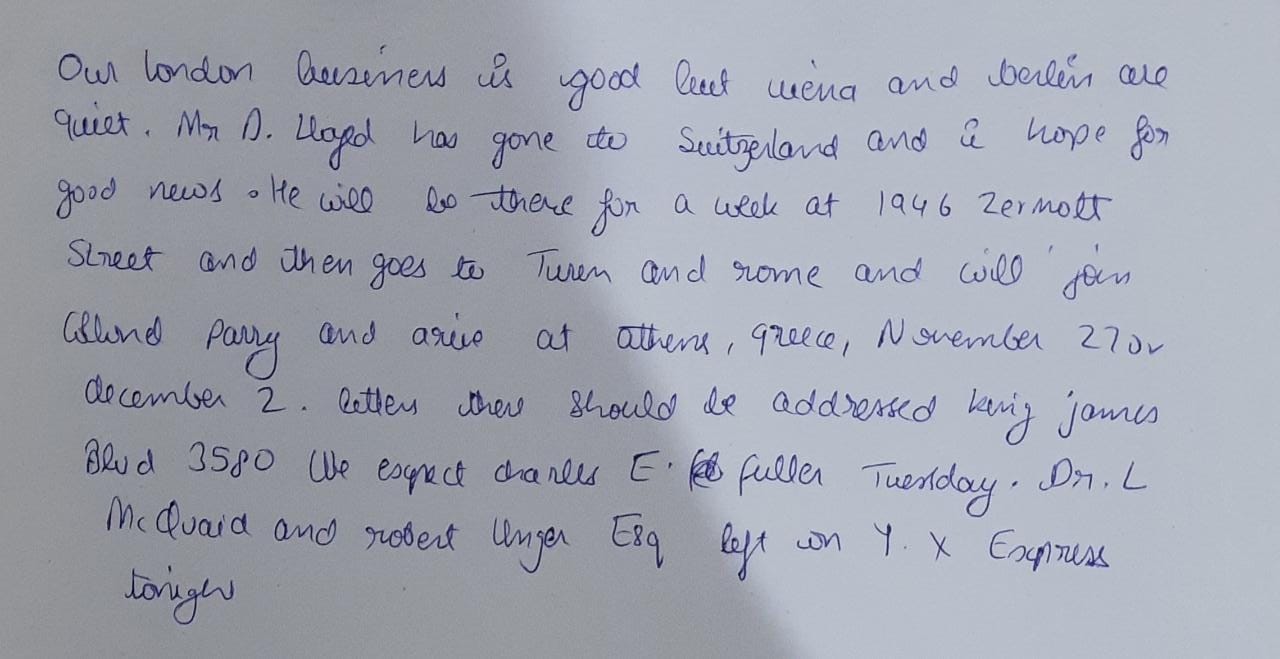 Our london business is good but viena and berlin are
quiet. Mr D. Lloyd has gone to Switzerland and i hope for
good news. He will be there for a week at 1946 Zermott
Street and then goes to Turen and rome and will join
Colund Parry and arive at athens, greece, November 27 or
december 2. letters there should be addressed king james
Blvd 3580 We expect charles E. fuller Tuesday. Dr. L
McQuaid and robert Unger Esq left on Y. X Express
tonight